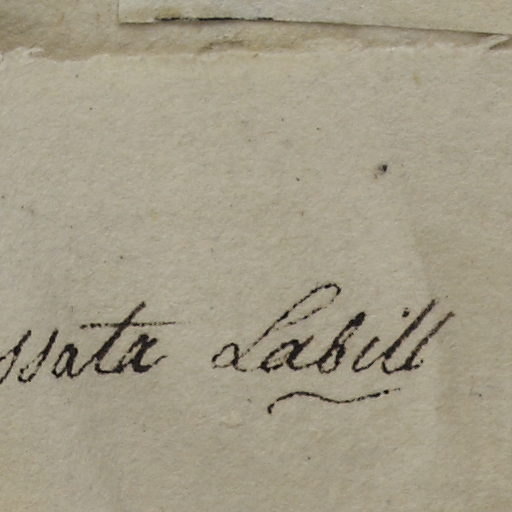 ssata Labill